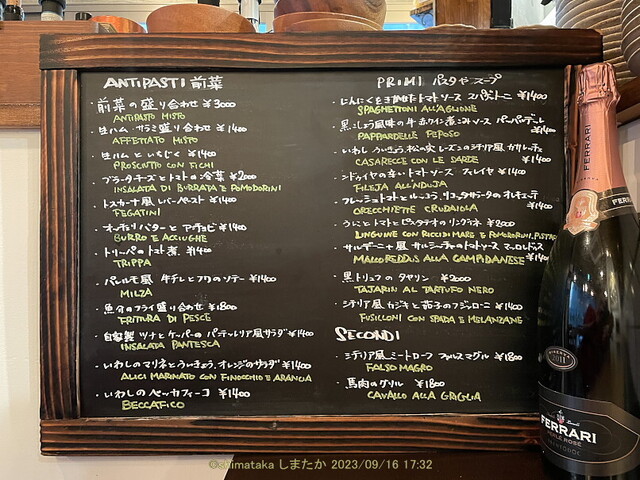 ANTIPASTI 前菜
・前菜の盛り合わせ ¥3000
ANTIPASTO MISTO
・生ハム・サラミ盛り合わせ ¥1400
AFFETTATO MISTO
・生ハムといちじく ¥1400
PROSCIUTTO CON FICHI
・ブラータチーズとトマトの冷菜 ¥2000
INSALATA DI BURRATA E POMODORINI
・トスカーナ風レバーペースト ¥1400
FEGATINI
・オーガニックバターとアンチョビ ¥1400
BURRO E ACCIUGHE
・トリッパのトマト煮 ¥1400
TRIPPA
・パレルモ風 牛チレとフワのソテー ¥1400
MILZA
・魚介のフライ盛り合わせ ¥1800
FRITTURA DI PESCE
・自家製ツナとケッパーのパンテッレリア風サラダ ¥1400
INSALATA PANTESCA
・いわしのマリネとういきょう、オレンジのサラダ ¥1400
ALICI MARINATO CON FINOCCHIO E ARANCIA
・いわしのベッカフィーコ ¥1400
BECCAFICO
PRIMI パスタやスープ
・にんにくをきかせたトマトソース スパゲットーニ ¥1400
SPAGHETTONI ALL'AGLIONE
・黒こしょう風味の牛赤ワイン煮こみソース パッパルデッレ ¥1400
PAPPARDELLE PEPOSO
・いわし、ういきょう、松の実、レーズンのシチリア風 カサレッチェ ¥1400
CASARECCE CON LE SARDE
・ンドゥイヤの辛いトマトソース フィレイヤ ¥1400
FILEJA ALL'NDUJA
・フレッシュトマトとルーコラ、リコッタサラータのオレキエッテ ¥1400
ORECCHIETTE CRUDAIOLA
・うにとトマトとピスタチオのリングイネ ¥2000
LINGUINE CON RICCI DI MARE E POMODORINI, PISTAC
・サルデーニャ風 サルシッチャのトマトソース マッロレッドゥス ¥1400
MALLOREDDUS ALLA CAMPIDANESE
・黒トリュフのタヤリン ¥2000
TAJARIN AL TARTUFO NERO
・シチリア風 カジキと茄子のフジッローニ ¥1400
FUSILLONI CON SPADA E MELANZANE
SECONDI
・シチリア風ミートローフ ファルスマグル ¥1800
FALSO MAGRO
・馬肉のグリル ¥1800
CAVALLO ALLA GRIGLIA
FERRARI
2011
FERRARI
©shimataka しまたか 2023/09/16 17:32